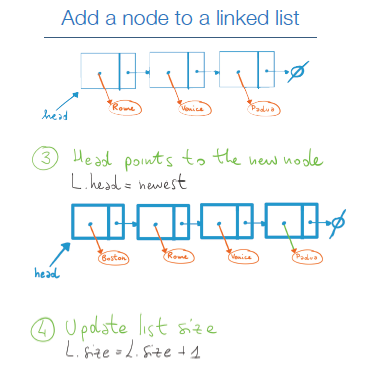 Add a node to a linked list
head
Rome Venice Padua
3 Head points to the new node
L.head = newest
head
Boston Rome Venice Padua
4 Update list size
L.size = L.size + 1